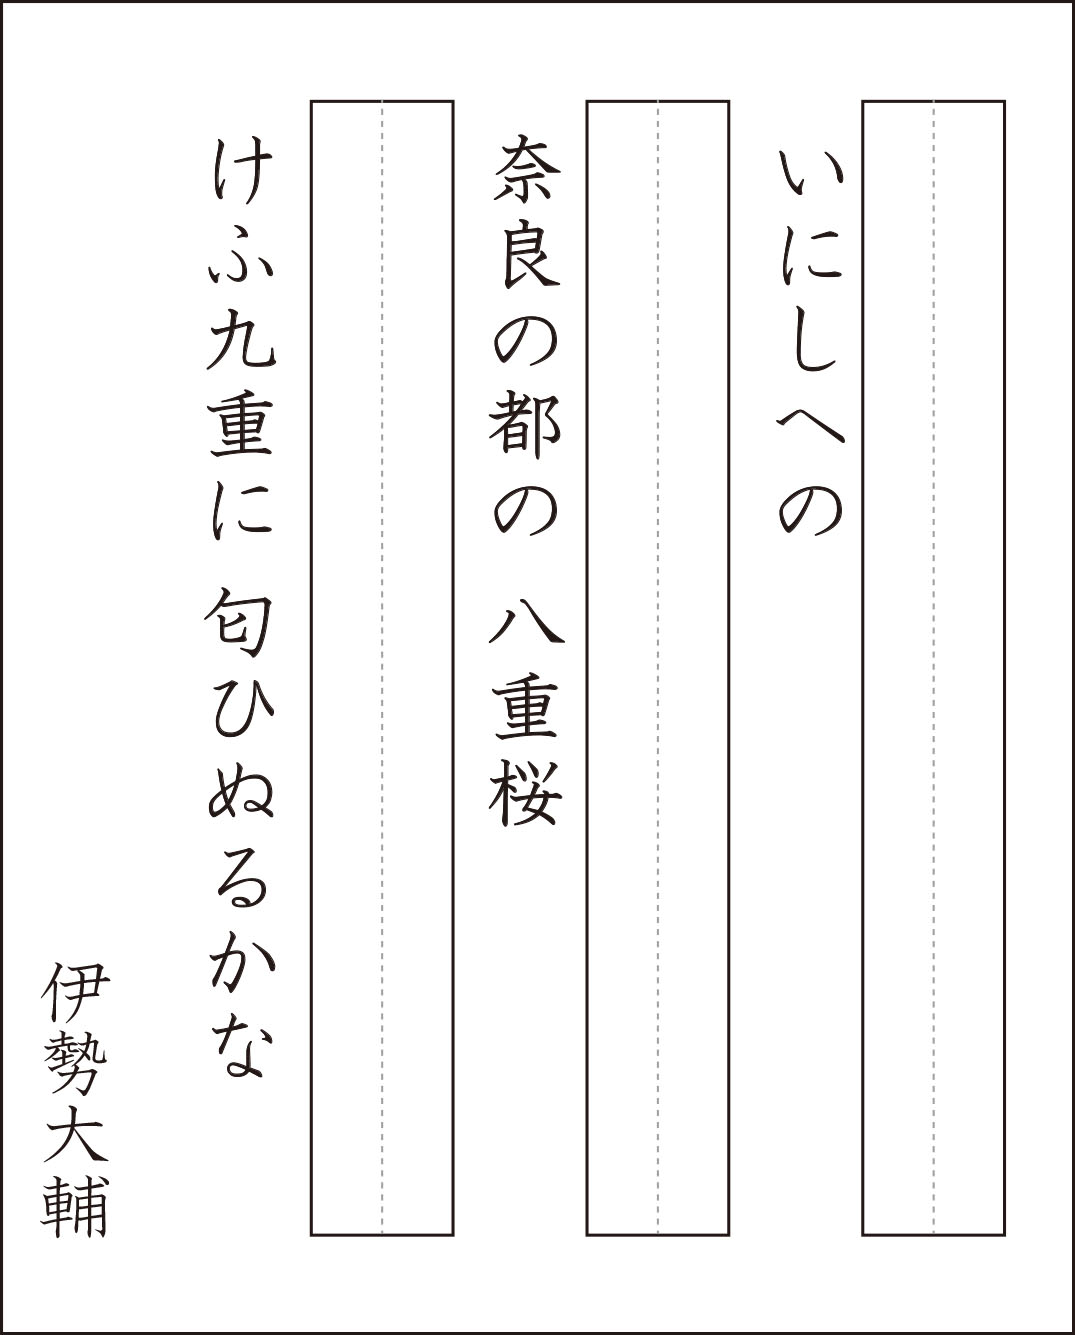 いにしへの
奈良の都の 八重桜
けふ九重に 匂ひぬるかな
伊勢大輔